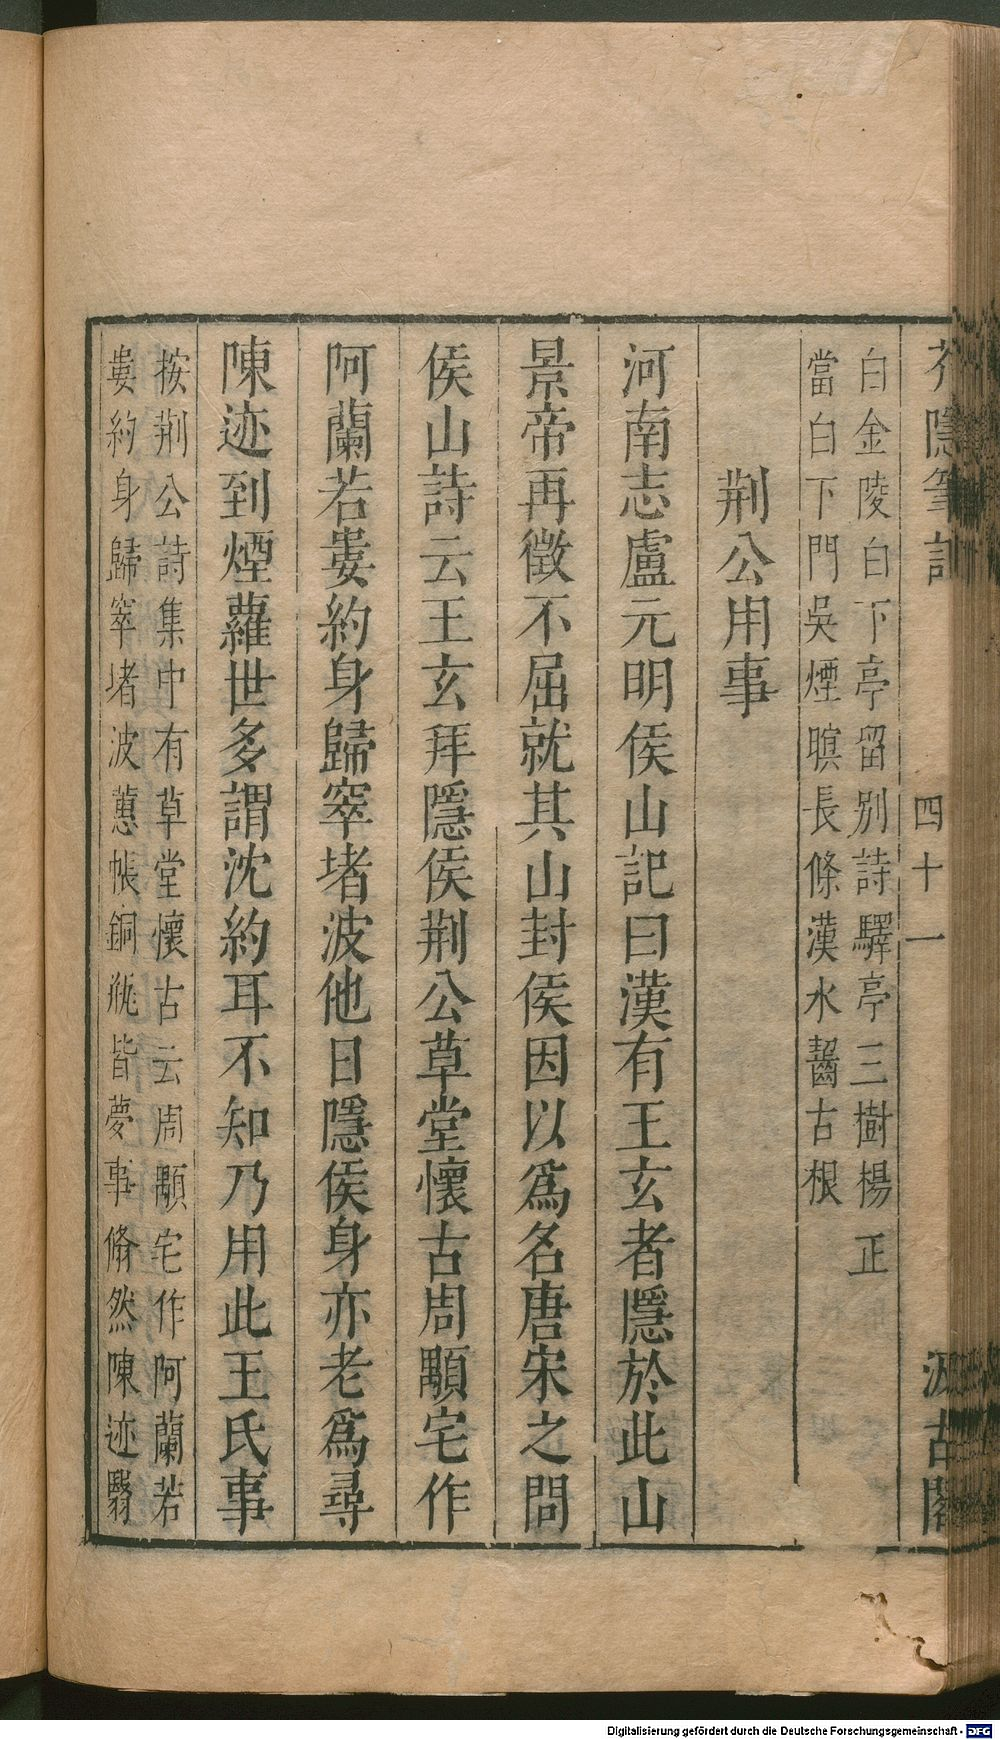 芥隱筆記
四十一
汲古閣
白金陵白下亭留别詩驛亭三樹楊正
當白下門吳煙暝長條漢水齧古根
荆公用事
河南志盧元明侯山記曰漢有王玄者隱於此山
景帝再徵不屈就其山封侯因以爲名唐宋之問
侯山詩云王玄拜隱侯荆公草堂懷古周顒宅作
阿蘭若婁約身歸窣堵波他日隱侯身亦老爲尋
陳迹到煙蘿世多謂沈約耳不知乃用此王氏事
按荆公詩集中有草堂懷古云周顒宅作阿蘭若
婁約身歸窣堵波蕙帳銅瓶皆夢事翛然陳迹翳
Digitalisierung gefördert durch die Deutsche Forschungsgemeinschaft - DFG